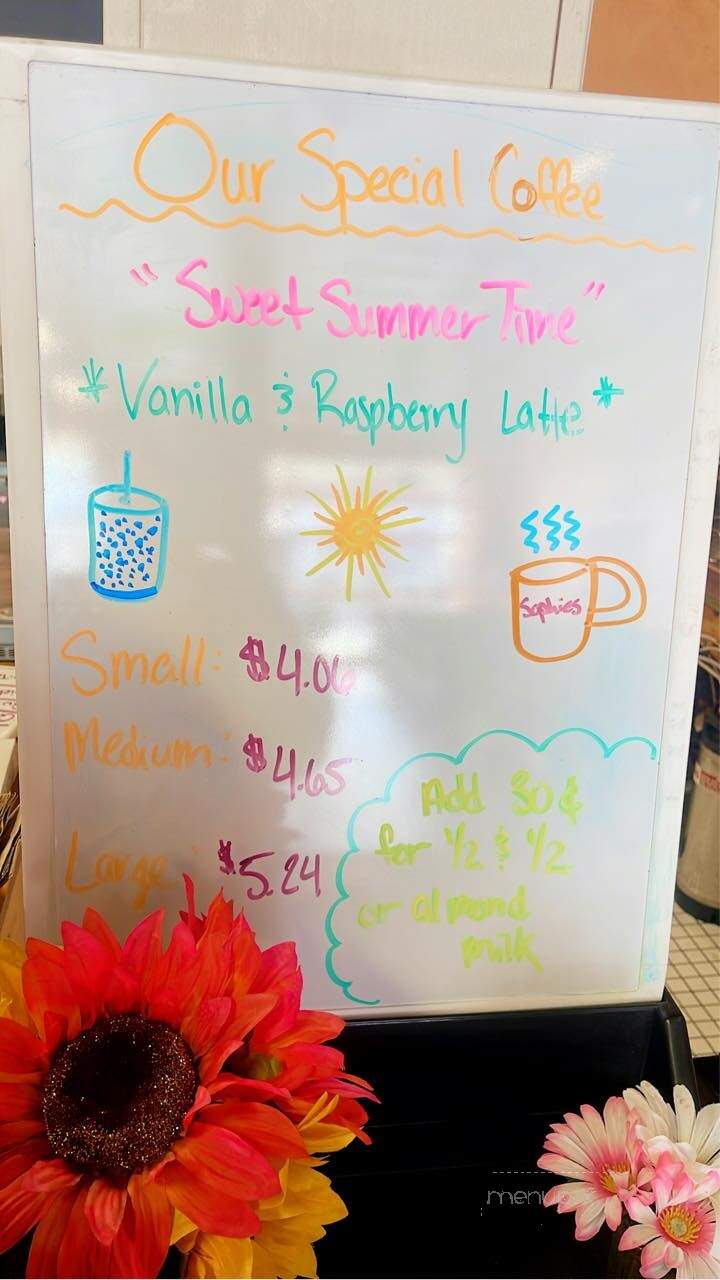 Our Special Coffee
"Sweet Summer Time"
*Vanilla & Raspberry Latte*
Sophies
Small: $4.06
Medium: $4.65
Large: $5.24
Add 30¢
for 1/2 & 1/2
or almond
milk
menu